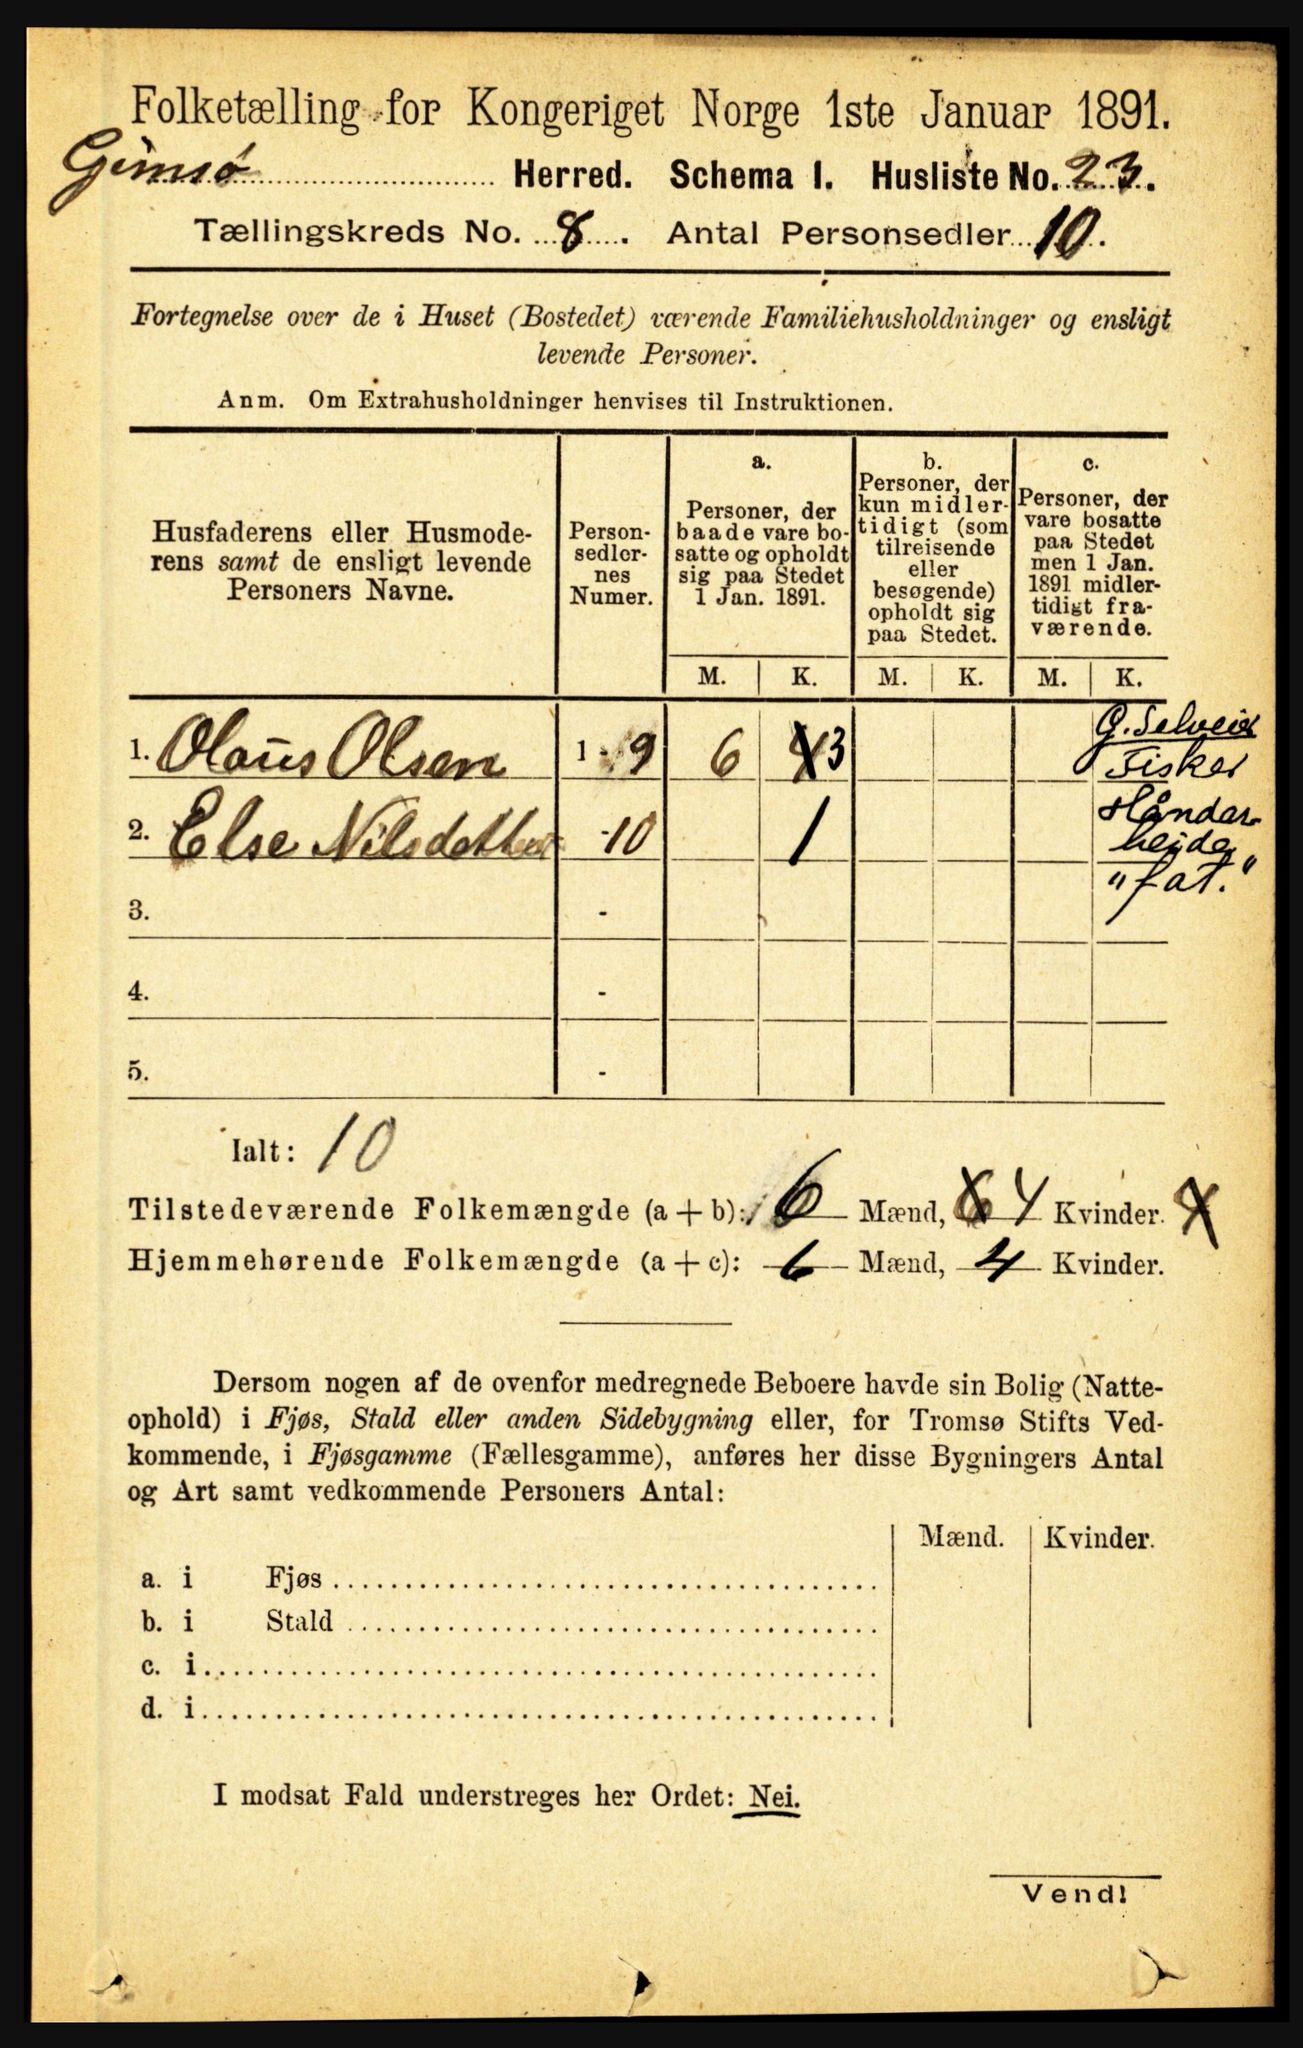 Folketælling for Kongeriget Norge 1ste Januar 1891.
Gimsø Herred. Schema I. Husliste No. 23.
Tællingskreds No. 8. Antal Personsedler 10.
Fortegnelse over de i Huset (Bostedet) værende Familiehusholdninger og ensligt
levende Personer.
Anm. Om Extrahusholdninger henvises til Instruktionen.
Husfaderens eller Husmode-
rens samt de ensligt levende
Personers Navne.
Person-
sedler-
nes
Numer.
a.
Personer, der
baade vare bo-
satte og opholdt
sig paa Stedet
1 Jan. 1891.
b.
Personer, der
kun midler-
tidigt (som
tilreisende
eller
besøgende)
opholdt sig
paa Stedet.
c.
Personer, der
vare bosatte
paa Stedet
men 1 Jan.
1891 midler-
tidigt fra-
værende.
M. K. M. K. M. K.
1. Olaus Olsen 1 - 9 6 4 3 G. Selveier
Fisker
2. Else Nilsdatter - 10 1 Håndar-
beide
"fat."
3. -
4. -
5. -
Ialt: 10
Tilstedeværende Folkemængde (a + b): 6 Mænd, 6 4 Kvinder. 4
Hjemmehørende Folkemængde (a + c): 6 Mænd, 4 Kvinder.
Dersom nogen af de ovenfor medregnede Beboere havde sin Bolig (Natte-
ophold) i Fjøs, Stald eller anden Sidebygning eller, for Tromsø Stifts Ved-
kommende, i Fjøsgamme (Fællesgamme), anføres her disse Bygningers Antal
og Art samt vedkommende Personers Antal:
Mænd. Kvinder.
a. i Fjøs
b. i Stald
c. i
d. i
I modsat Fald understreges her Ordet: Nei.
Vend!